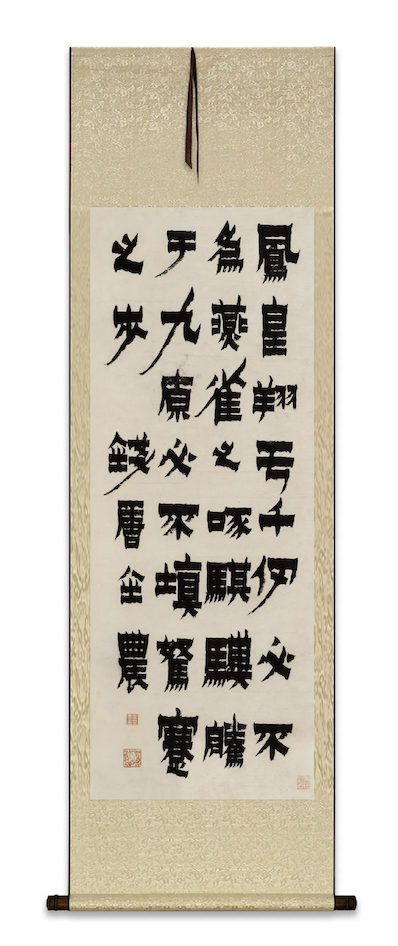 鳳皇翔亏千仞必不
為燕雀之啄騏驥騰
于九原必不填駑蹇
之步
錢唐金農